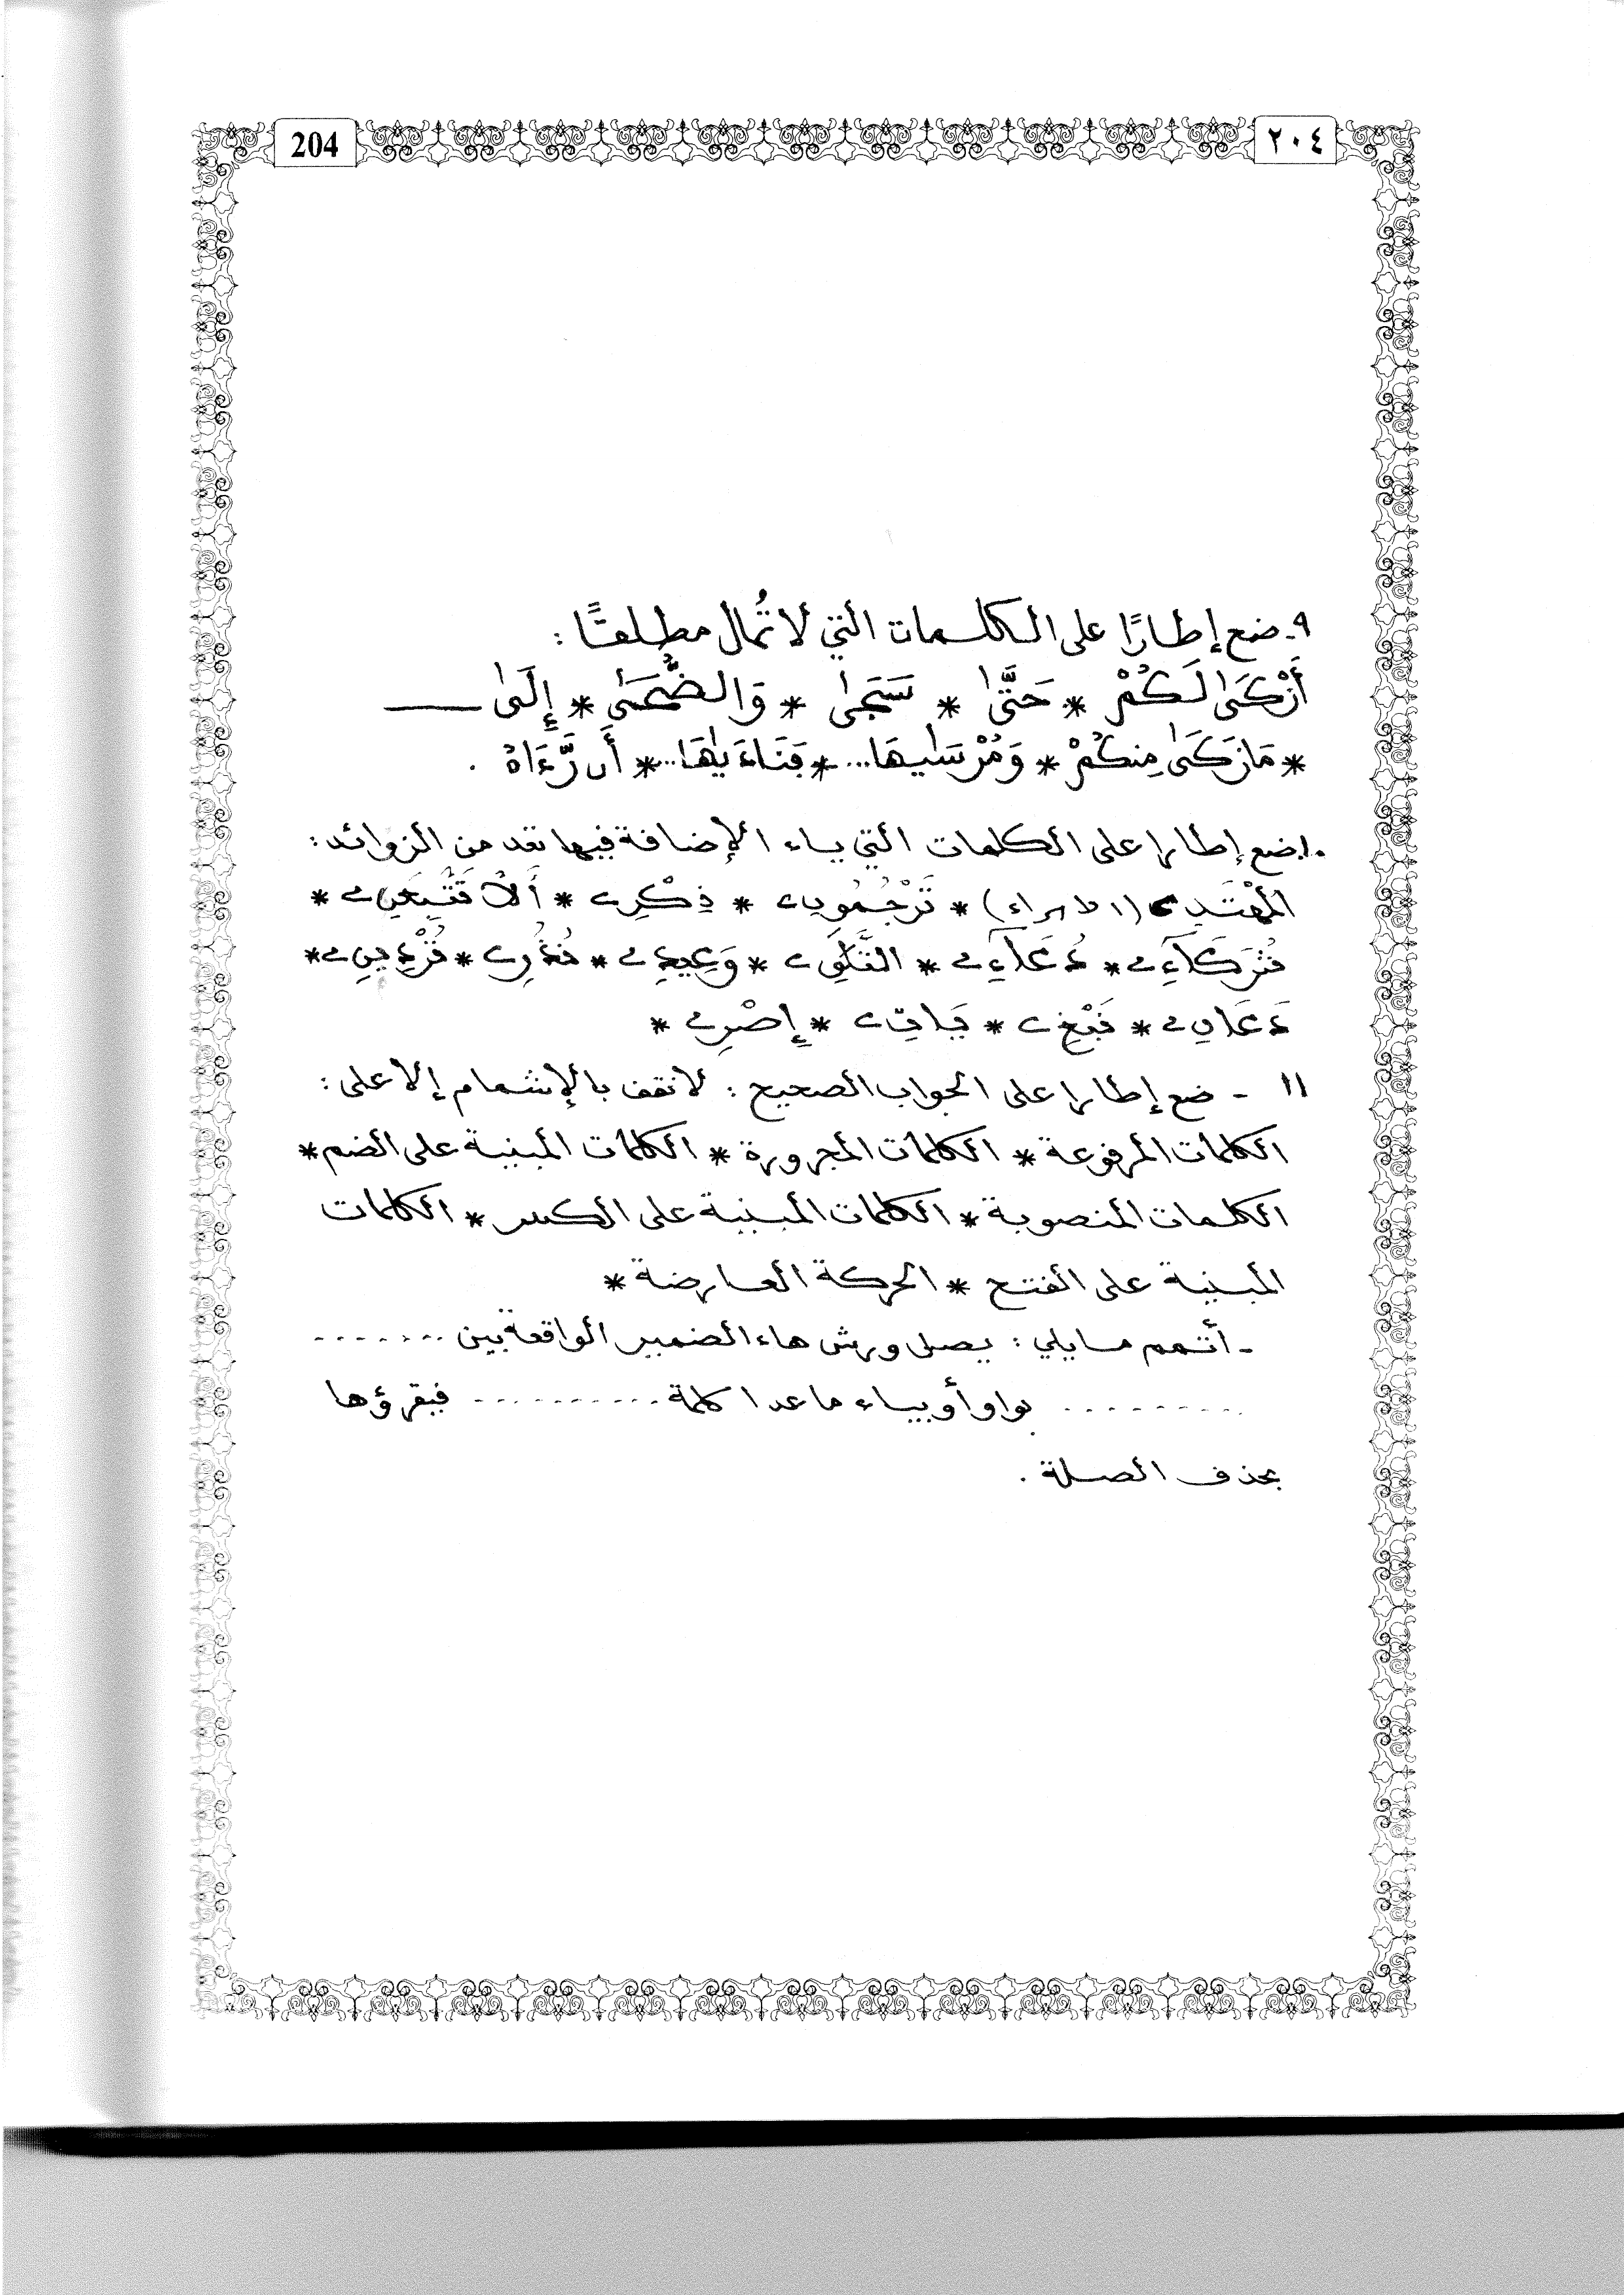 204
٢٠٤
٩- ضع إطارًا على الكلمات التي لا تُمال مطلقًا :
أَزْكَىٰ لَكُمْ * حَتَّىٰ * سَجَىٰ * وَالضُّحَىٰ * إِلَىٰ
* مَا زَكَىٰ مِنكُمْ * وَمُرْسَىٰهَا... * فَنَاءَىٰهَا... * أَن رَّءَاهُ .
١٠. ضع إطارا على الكلمات التي ياء الإضافة فيها تعد من الزوائد :
الْمُهْتَدِے (الاسراء) * تَرْجُمُونِے * ذِكْرِے * أَلَّا تَتَّبِعَنِے *
شُرَكَآءِے * دُعَآءِے * التَّلَقِے * وَعِيدِے * نُذُرِے * تُرْدِينِے *
دَعَانِے * نَبْغِے * يَاتِے * إِصْرِے *
١١ - ضع إطارا على الجواب الصحيح : لا نقف بالإشمام إلا على :
الكلمات المرفوعة * الكلمات المجرورة * الكلمات المبنية على الضم *
الكلمات المنصوبة * الكلمات المبنية على الكسر * الكلمات
المبنية على الفتح * الحركة العارضة *
- أتمم مايلي : يصل ورش هاء الضمير الواقعة بين ........
......... بواو أو بياء ما عدا كلمة ........... فيقرؤها
بحذف الصلة .